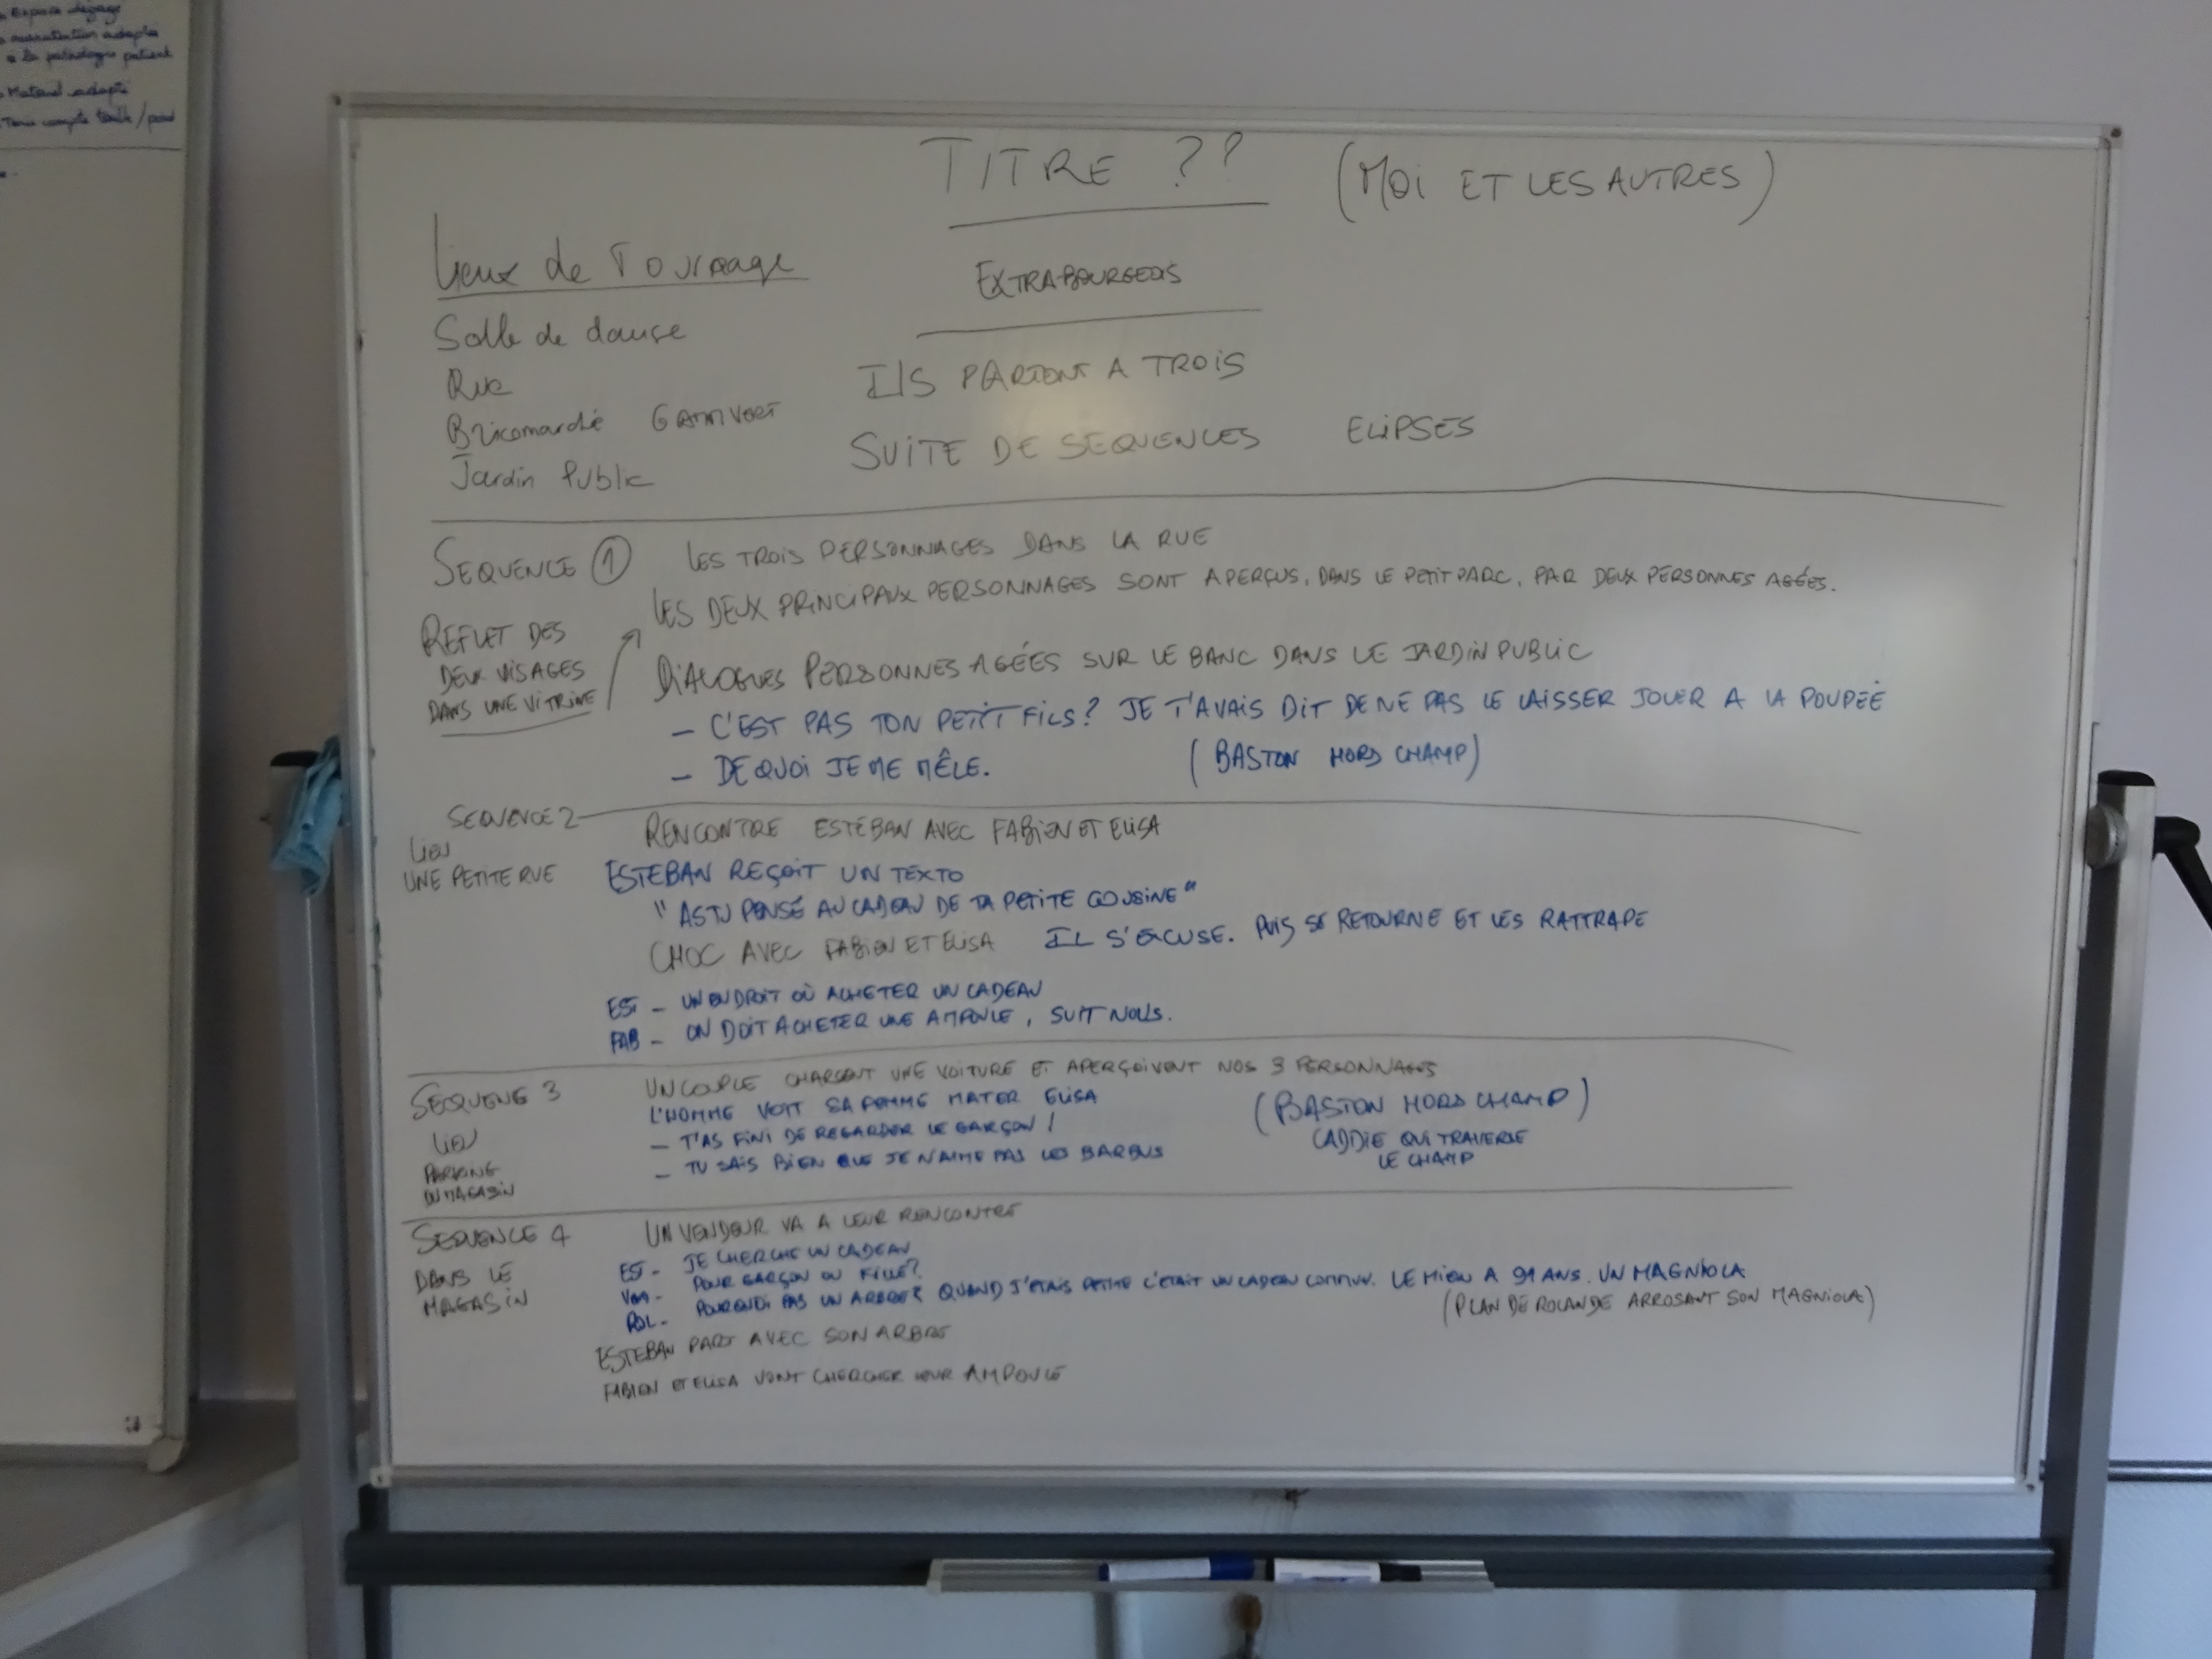 Espace dégagé
manutention adaptée
à la pathologie patient
Materiel adapté
Tenir compte taille / poids
TITRE ?? (MOI ET LES AUTRES)
Lieux de Tournage
EXTRABOURGEOIS
Salle de danse
ILS PARTENT A TROIS
Rue
Bricomarché GAMM VERT
SUITE DE SEQUENCES ELIPSES
Jardin Public
SEQUENCE 1 LES TROIS PERSONNAGES DANS LA RUE
LES DEUX PRINCIPAUX PERSONNAGES SONT APERÇUS, DANS LE PETIT PARC, PAR DEUX PERSONNES AGÉES.
REFLET DES
DEUX VISAGES
DANS UNE VITRINE
DIALOGUES PERSONNES AGÉES SUR LE BANC DANS LE JARDIN PUBLIC
- C'EST PAS TON PETIT FILS? JE T'AVAIS DIT DE NE PAS LE LAISSER JOUER A LA POUPEÉ
- DE QUOI JE ME MÊLE. (BASTON HORS CHAMP)
SEQUENCE 2 RENCONTRE ESTÉBAN AVEC FABIEN ET ELISA
LIEU
UNE PETITE RUE
ESTEBAN REÇOIT UN TEXTO
"AS TU PENSÉ AU CADEAU DE TA PETITE COUSINE"
CHOC AVEC FABIEN ET ELISA IL S'EXCUSE. PUIS SE RETOURNE ET LES RATTRAPE
EST - UN ENDROIT OÙ ACHETER UN CADEAU
FAB - ON DOIT ACHETER UNE AMPOULE, SUIT NOUS.
SEQUENCE 3 UN COUPLE CHARGENT UNE VOITURE ET APERÇOIVENT NOS 3 PERSONNAGES
LIEU
PARKING
DU MAGASIN
L'HOMME VOIT SA FEMME MATER ELISA
- T'AS FINI DE REGARDER LE GARÇON !
- TU SAIS BIEN QUE JE N'AIME PAS LES BARBUS
(BASTON HORS CHAMP)
CADDIE QUI TRAVERSE
LE CHAMP
SEQUENCE 4 UN VENDEUR VA A LEUR RENCONTRE
DANS LE
MAGASIN
EST - JE CHERCHE UN CADEAU
VEN - POUR GARÇON OU FILLE?
ROL - POURQUOI PAS UN ARBRE? QUAND J'ETAIS PETITE C'ETAIT UN CADEAU COMMUN. LE MIEN A 91 ANS. UN MAGNIOLA
(PLAN DE ROLANDE ARROSANT SON MAGNIOLA)
ESTEBAN PART AVEC SON ARBRE
FABIEN ET ELISA VONT CHERCHER LEUR AMPOULE